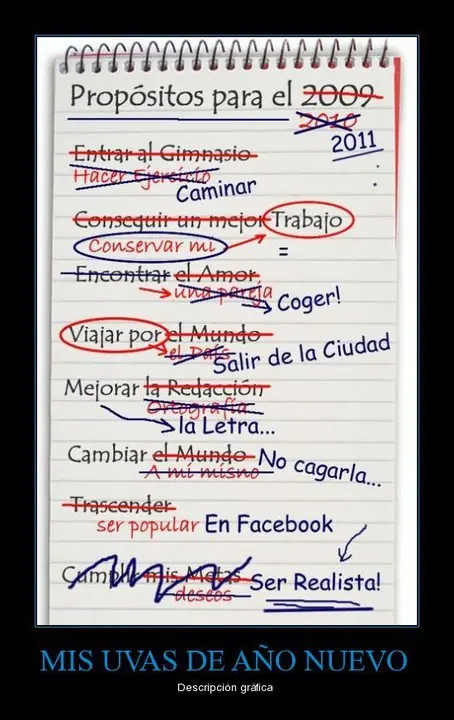 Propósitos para el 2009
2010
2011
Entrar al Gimnasio
Hacer Ejercicio
Caminar
Conseguir un mejor Trabajo
Conservar mi
=
Encontrar el Amor
una pareja
Coger!
Viajar por el Mundo
el País
Salir de la Ciudad
Mejorar la Redacción
Ortografía
la Letra...
Cambiar el Mundo No cagarla...
A mi misno
Trascender
ser popular En Facebook
Cumplir mis Metas
deseos Ser Realista!
MIS UVAS DE AÑO NUEVO
Descripción gráfica